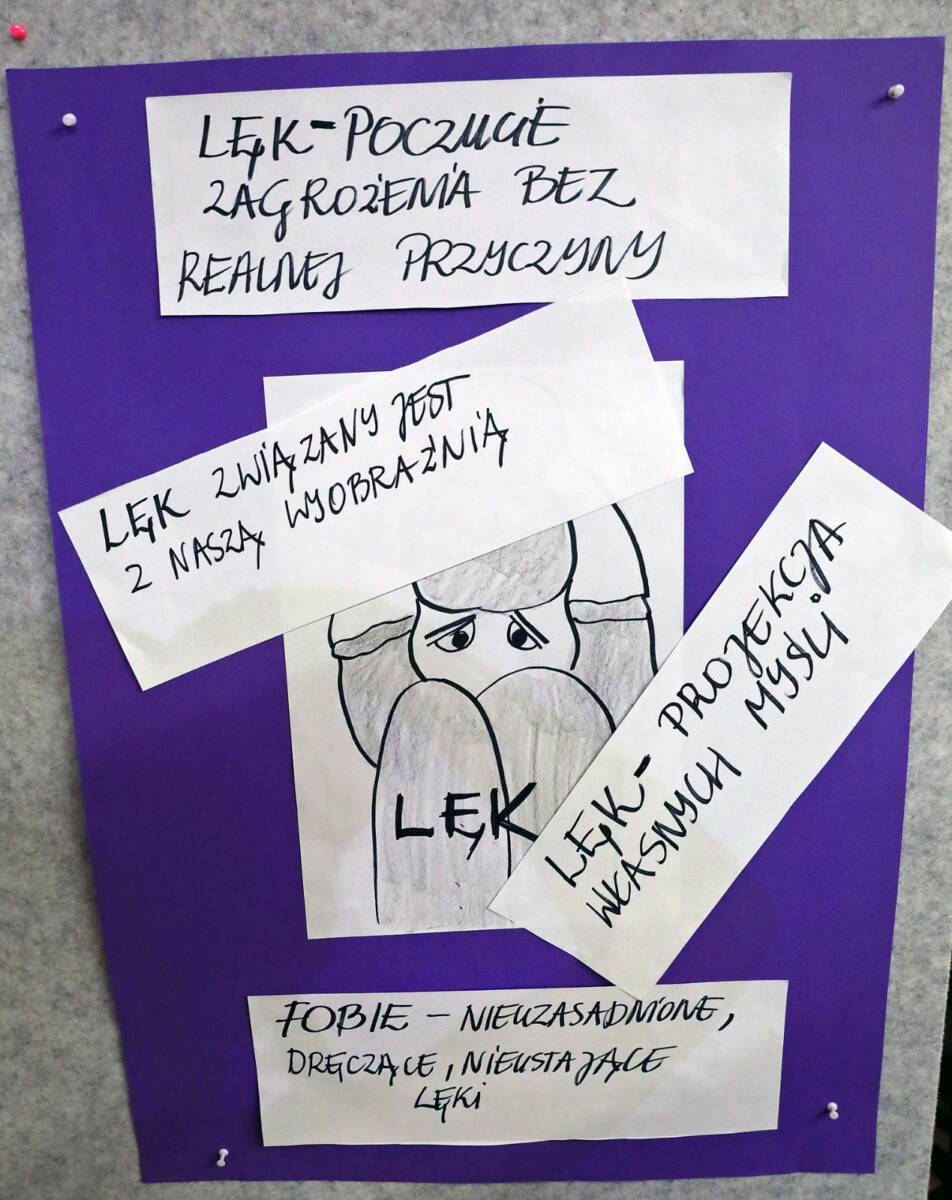 LĘK-POCZUCIE
ZAGROŻENIA BEZ
REALNEJ PRZYCZYNY
LĘK ZWIĄZANY JEST
Z NASZĄ WYOBRAŹNIĄ
LĘK
LĘK- PROJEKCJA
WŁASNYCH MYŚLI
FOBIE – NIEUZASADNIONE,
DRĘCZĄCE, NIEUSTAJĄCE
LĘKI